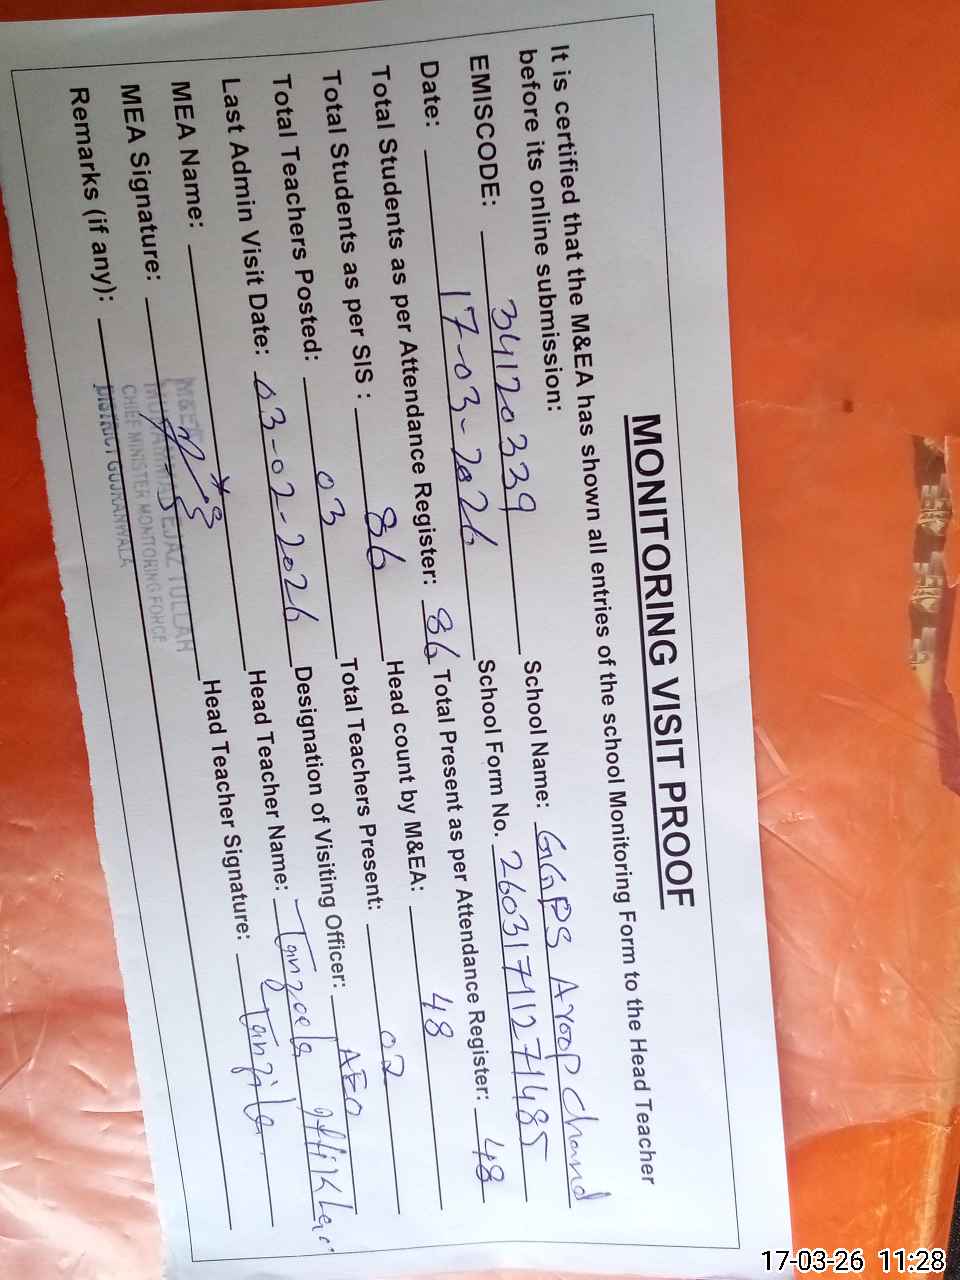 MONITORING VISIT PROOF
It is certified that the M&EA has shown all entries of the school Monitoring Form to the Head Teacher
before its online submission:
EMISCODE: 34120339 School Name: GGPS Aroop Chand
Date: 17-03-2026 School Form No. 26031711271485
Total Students as per Attendance Register: 86 Total Present as per Attendance Register: 48
Total Students as per SIS : 86 Head count by M&EA: 48
Total Teachers Posted: 03 Total Teachers Present: 02
Last Admin Visit Date: 03-02-2026 Designation of Visiting Officer: AEO
MEA Name: Head Teacher Name: Tanzeela
MEA Signature: Head Teacher Signature: Tanzila
Remarks (if any):
EJAZ TULLAH
CHIEF MINISTER MONITORING FORCE
DISTRICT GUJRANWALA
17-03-26 11:28